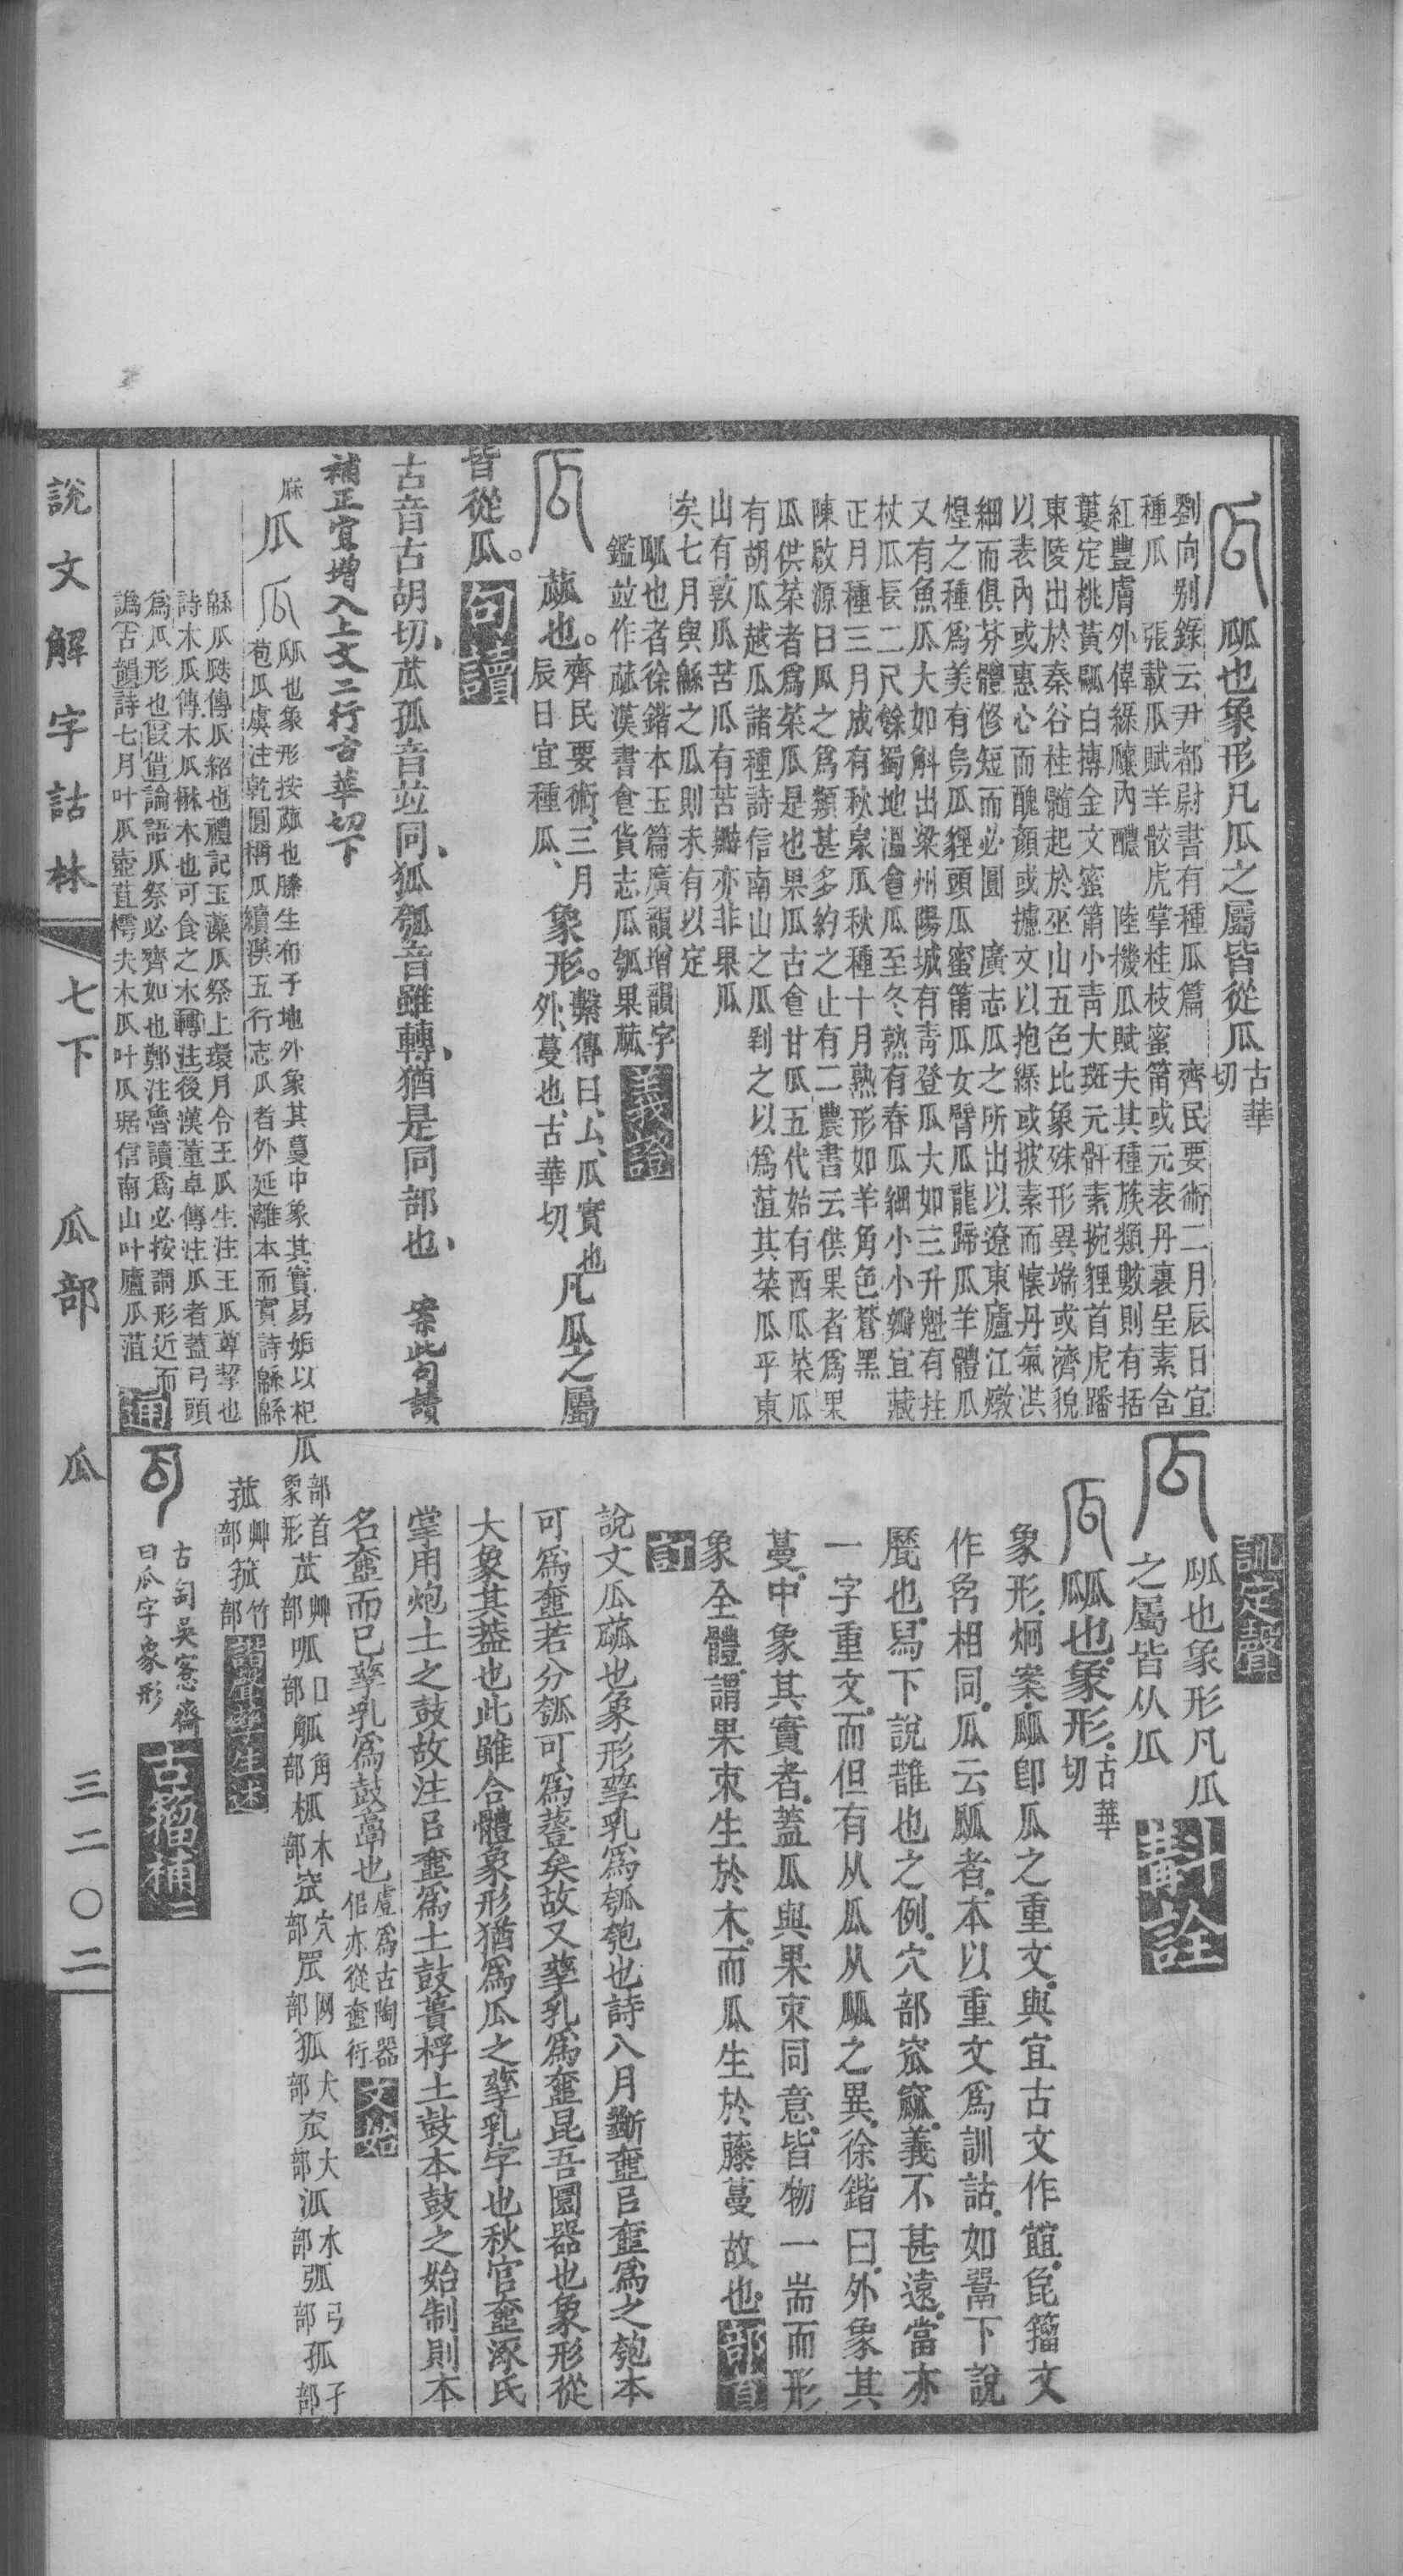 㼌也象形凡瓜之屬皆從瓜古華切
劉向别錄云尹都尉書有種瓜篇　齊民要術二月辰日宜
種瓜　張載瓜賦羊骹虎掌桂枝蜜筩或元表丹裏呈素含
紅豐膚外偉綠瓤內醲　陸機瓜賦夫其種族類數則有括
蔞定桃黃㼐白摶金文蜜筩小青大斑元骭素捥貍首虎蹯
東陵出於秦谷桂髓起於巫山五色比象殊形異端或濟貌
以表內或惠心而醜顏或攄文以抱綠或披素而懷丹氣淇
細而俱芬體修短而必圓　廣志瓜之所出以遼東廬江燉
煌之種爲美有烏瓜貍頭瓜蜜筩瓜女臂瓜龍蹄瓜羊體瓜
又有魚瓜大如斛出梁州陽城有青登瓜大如三升魁有拄
杖瓜長二尺餘蜀地溫食瓜至冬熟有春瓜細小小瓣宜藏
正月種三月成有秋泉瓜秋種十月熟形如羊角色蒼黑
陳啟源曰瓜之爲類甚多約之止有二農書云供果者爲果
瓜供菜者爲菜瓜是也果瓜古食甘瓜五代始有西瓜菜瓜
有胡瓜越瓜諸種詩信南山之瓜剝之以爲菹其菜瓜乎東
山有敦瓜苦瓜有苦瓣亦非果瓜
矣七月與緜之瓜則未有以定
㼌也者徐鍇本玉篇廣韻增韻字
鑑竝作蓏漢書食貨志瓜瓠果蓏義證
蓏也。齊民要術、三月辰日宜種瓜、象形。繫傳曰、厶、瓜實也、外、蔓也、古華切、凡瓜之屬
皆從瓜。句讀
古音古胡切、苽孤音竝同、狐瓠音雖轉、猶是同部也、案此句讀
補正宜增入上文二行古華切下
麻瓜 㼌也象形按蓏也䕨生布于地外象其蔓中象其實易姤以杞
苞瓜虞注乾圓稱瓜續漢五行志瓜者外延離本而實詩緜緜
緜瓜瓞傳瓜紹也禮記玉藻瓜祭上環月令王瓜生注王瓜萆挈也
詩木瓜傳木瓜楙木也可食之木轉注後漢董卓傳注瓜者蓋弓頭
爲瓜形也叚借論語瓜祭必齊如也鄭注魯讀爲必按謂形近而
譌古韻詩七月叶瓜壺苴樗夫木瓜叶瓜琚信南山叶廬瓜菹通
訓定聲
㼌也象形凡瓜之屬皆从瓜斠詮
㼌也象形古華切
象形炯案㼌卽瓜之重文與宜古文作𡪀㲋籀文
作㲋相同瓜云㼌者本以重文爲訓詁如鬲下說
䰛也舄下說䧿也之例穴部窊窳義不甚遠當亦
一字重文而但有从瓜从㼌之異徐鍇曰外象其
蔓中象其實者蓋瓜與果朿同意皆物一耑而形
象全體謂果朿生於木而瓜生於藤蔓故也部首
訂
說文瓜蓏也象形孳乳爲瓠匏也詩八月斷壷㠯壷爲之匏本
可爲壷若分瓠可爲蠡矣故又孳乳爲壷昆吾圜器也象形從
大象其葢也此雖合體象形猶爲瓜之孳乳字也秋官壷涿氏
掌用炮土之鼓故注㠯壷爲土鼓蕢桴土鼓本鼓之始制則本
名壷而已孳乳爲鼓𩫖也虘爲古陶器作亦從壷衍文始
瓜部首象形苽艸部呱口部觚角部柧木部窊穴部罛网部狐犬部㼌大部泒水部弧弓部孤子部
菰艸部箛竹部諧聲孳生述
古匋吳愙齋曰瓜字象形古籀補
說文解字詁林　七下　瓜部　瓜　三二〇二